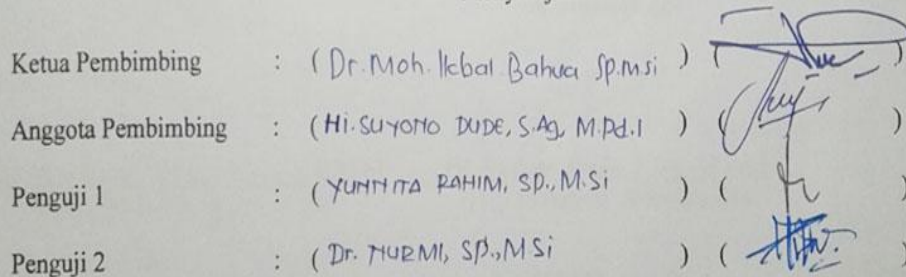 Ketua Pembimbing : ( Dr. Moh. Ikbal Bahua Sp.Msi ) ( )
Anggota Pembimbing : ( Hi. SUYONO DUDE, S.Ag, M.Pd.I ) ( )
Penguji 1 : ( YUNNITA RAHIM, SP., M.Si ) ( )
Penguji 2 : ( Dr. NURMI, SP., MSi ) ( )